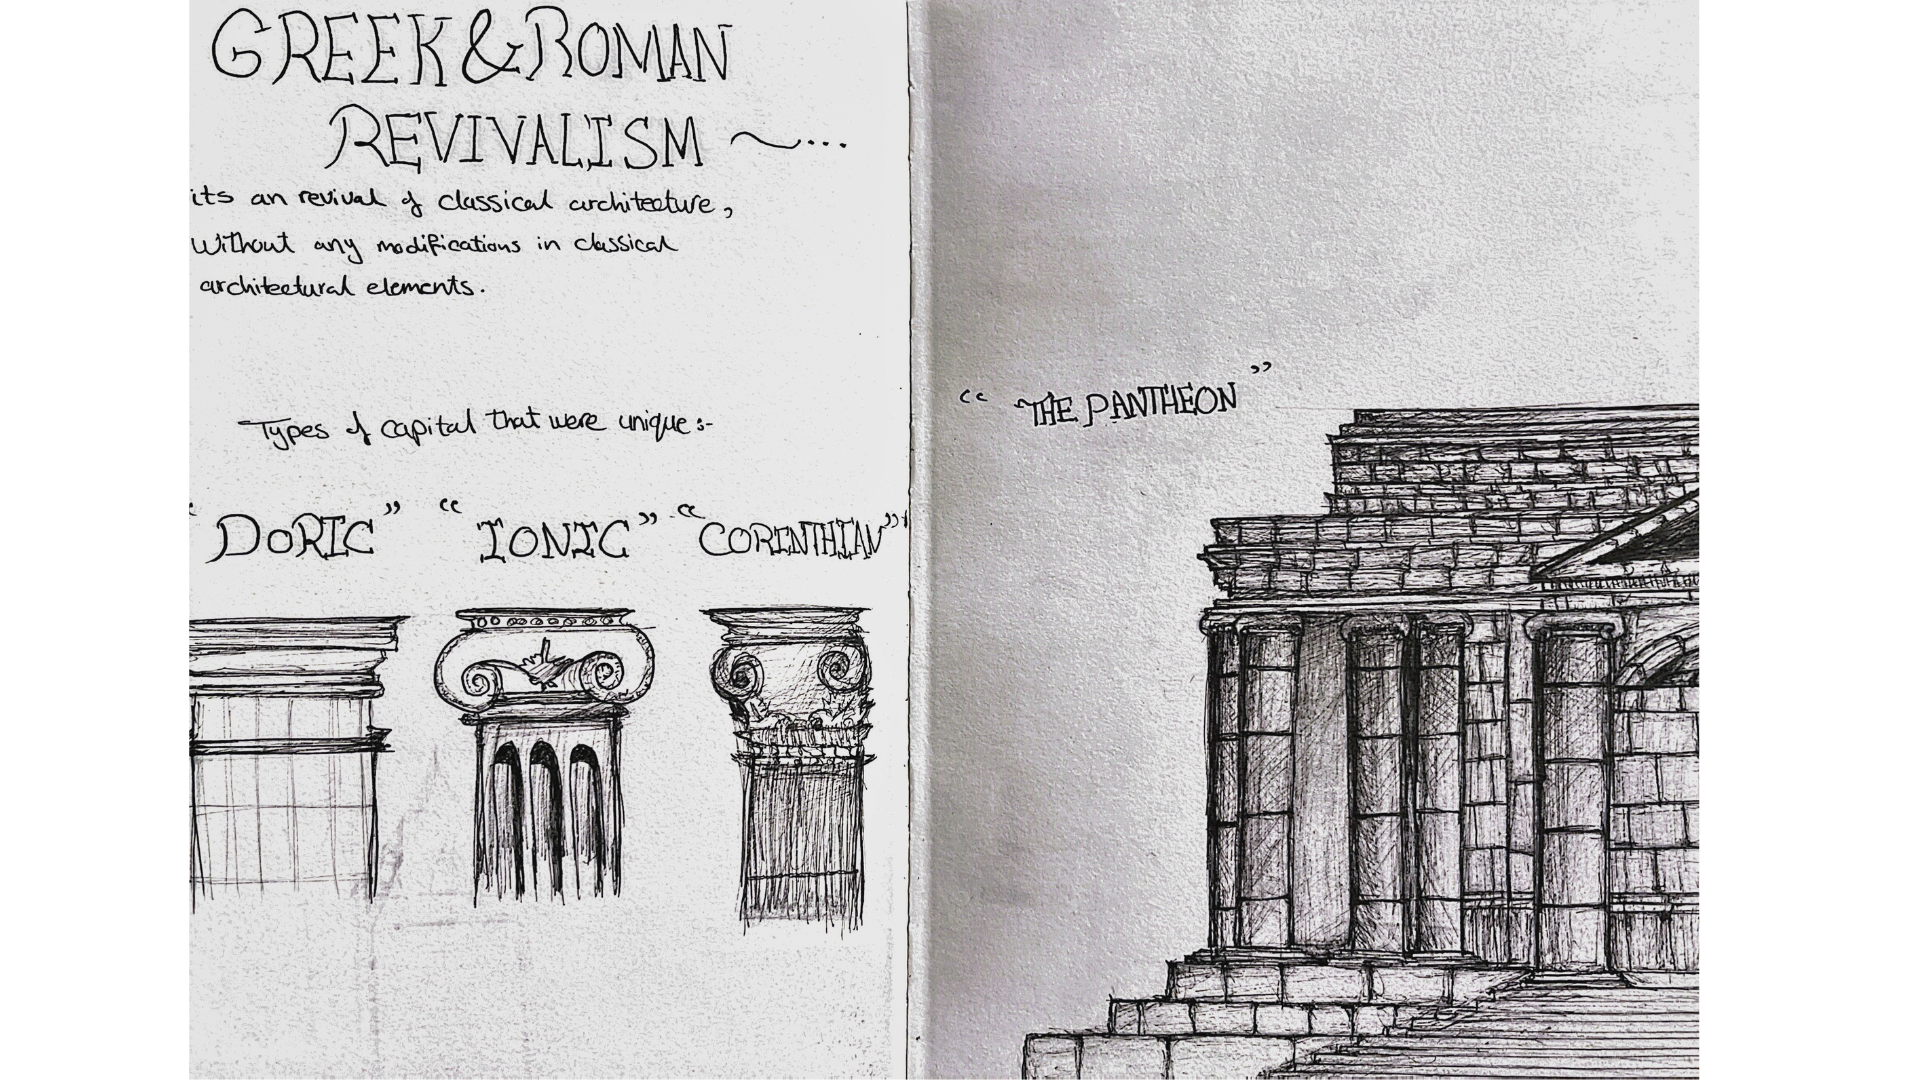 GREEK & ROMAN
REVIVALISM ~...
its an revival of classical architecture,
Without any modifications in classical
architectural elements.
Types of capital that were unique :-
"DORIC" "IONIC" "CORINTHIAN"
"THE PANTHEON"